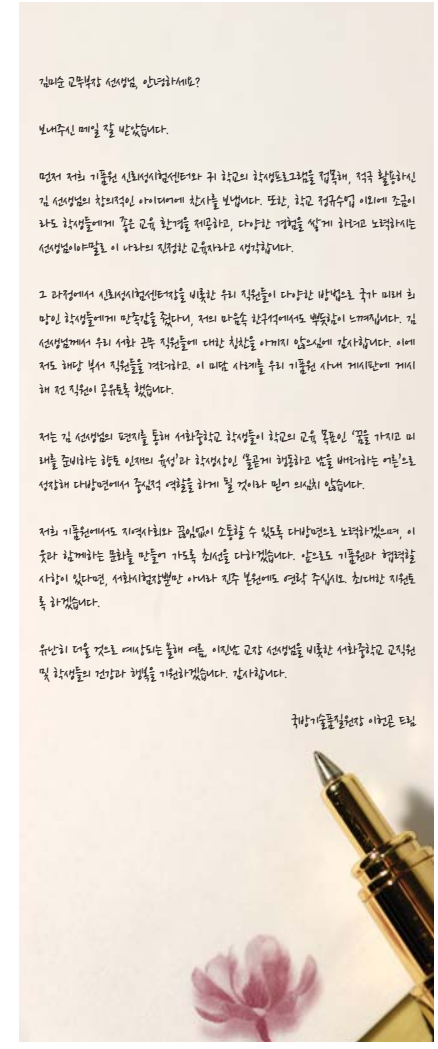 김미순 교무부장 선생님, 안녕하세요?
보내주신 메일 잘 받았습니다.
먼저 저희 기품원 신뢰성시험센터와 귀 학교의 학생프로그램을 접목해, 적극 활용하신
김 선생님의 창의적인 아이디어에 찬사를 보냅니다. 또한, 학교 정규수업 이외에 조금이
라도 학생들에게 좋은 교육 환경을 제공하고, 다양한 경험을 쌓게 하려고 노력하시는
선생님이야말로 이 나라의 진정한 교육자라고 생각합니다.
그 과정에서 신뢰성시험센터장을 비롯한 우리 직원들이 다양한 방법으로 국가 미래 희
망인 학생들에게 만족감을 줬다니, 저의 마음속 한구석에서도 뿌듯함이 느껴집니다. 김
선생님께서 우리 서화 근무 직원들에 대한 칭찬을 아끼지 않으심에 감사합니다. 이에
저도 해당 부서 직원들을 격려하고, 이 미담 사례를 우리 기품원 사내 게시판에 게시
해 전 직원이 공유토록 했습니다.
저는 김 선생님의 편지를 통해 서화중학교 학생들이 학교의 교육 목표인 ‘꿈을 가지고 미
래를 준비하는 향토 인재의 육성’과 학생상인 ‘올곧게 행동하고 남을 배려하는 어른’으로
성장해 다방면에서 중심적 역할을 하게 될 것이라 믿어 의심치 않습니다.
저희 기품원에서도 지역사회와 끊임없이 소통할 수 있도록 다방면으로 노력하겠으며, 이
웃과 함께하는 문화를 만들어 가도록 최선을 다하겠습니다. 앞으로도 기품원과 협력할
사항이 있다면, 서화시험장뿐만 아니라 진주 본원에도 연락 주십시오. 최대한 지원토
록 하겠습니다.
유난히 더울 것으로 예상되는 올해 여름, 이진남 교장 선생님을 비롯한 서화중학교 교직원
및 학생들의 건강과 행복을 기원하겠습니다. 감사합니다.
국방기술품질원장 이헌곤 드림